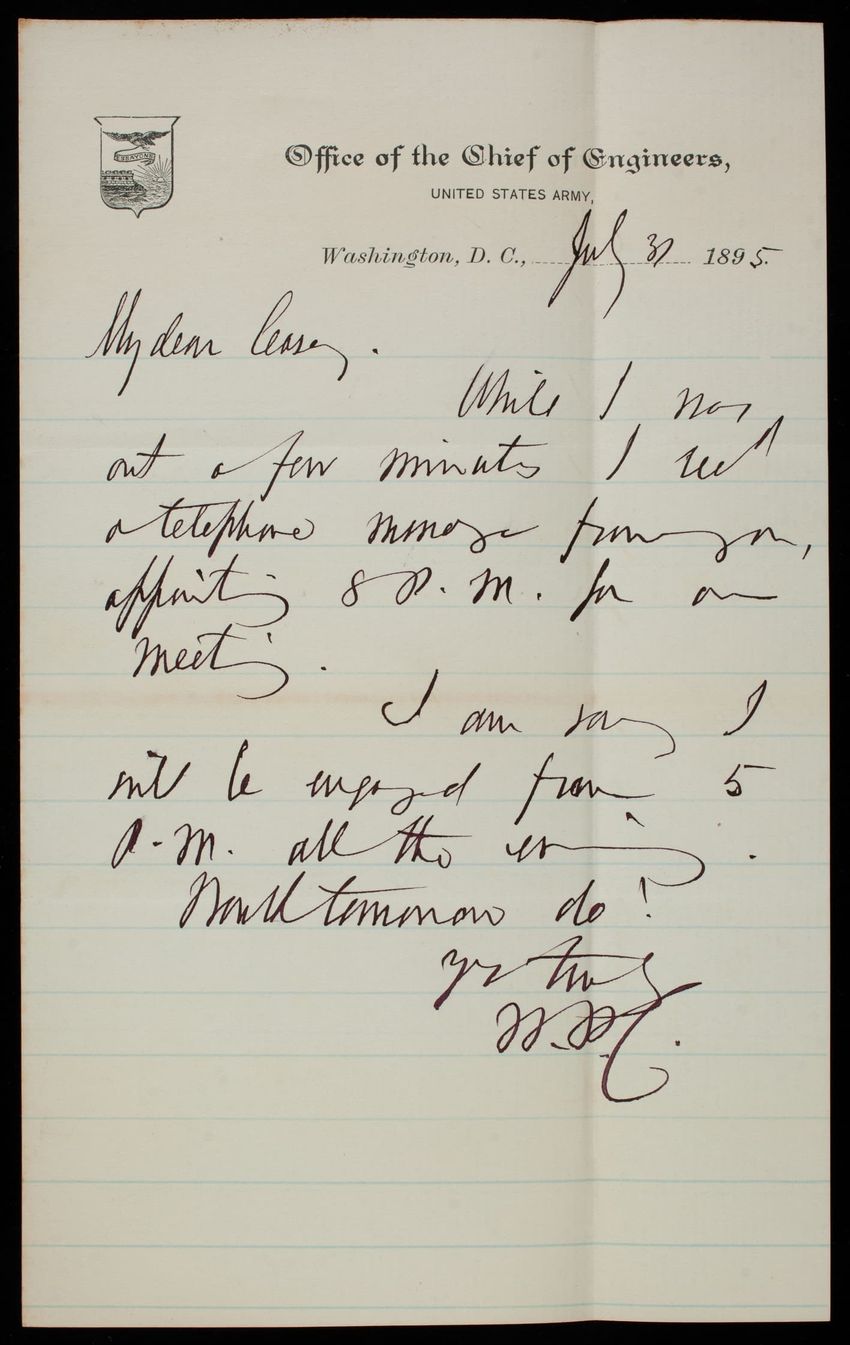 ESSAYONS
Office of the Chief of Engineers,
UNITED STATES ARMY,
Washington, D. C., July 31 1895.
My dear Casey.
While I was
out a few minutes I recd
a telephone message from you,
appointing 8 P. M. for our
meeting.
I am sorry I
will be engaged from 5
P. M. all the evening.
Would tomorrow do?
yrs truly
W. P. C.